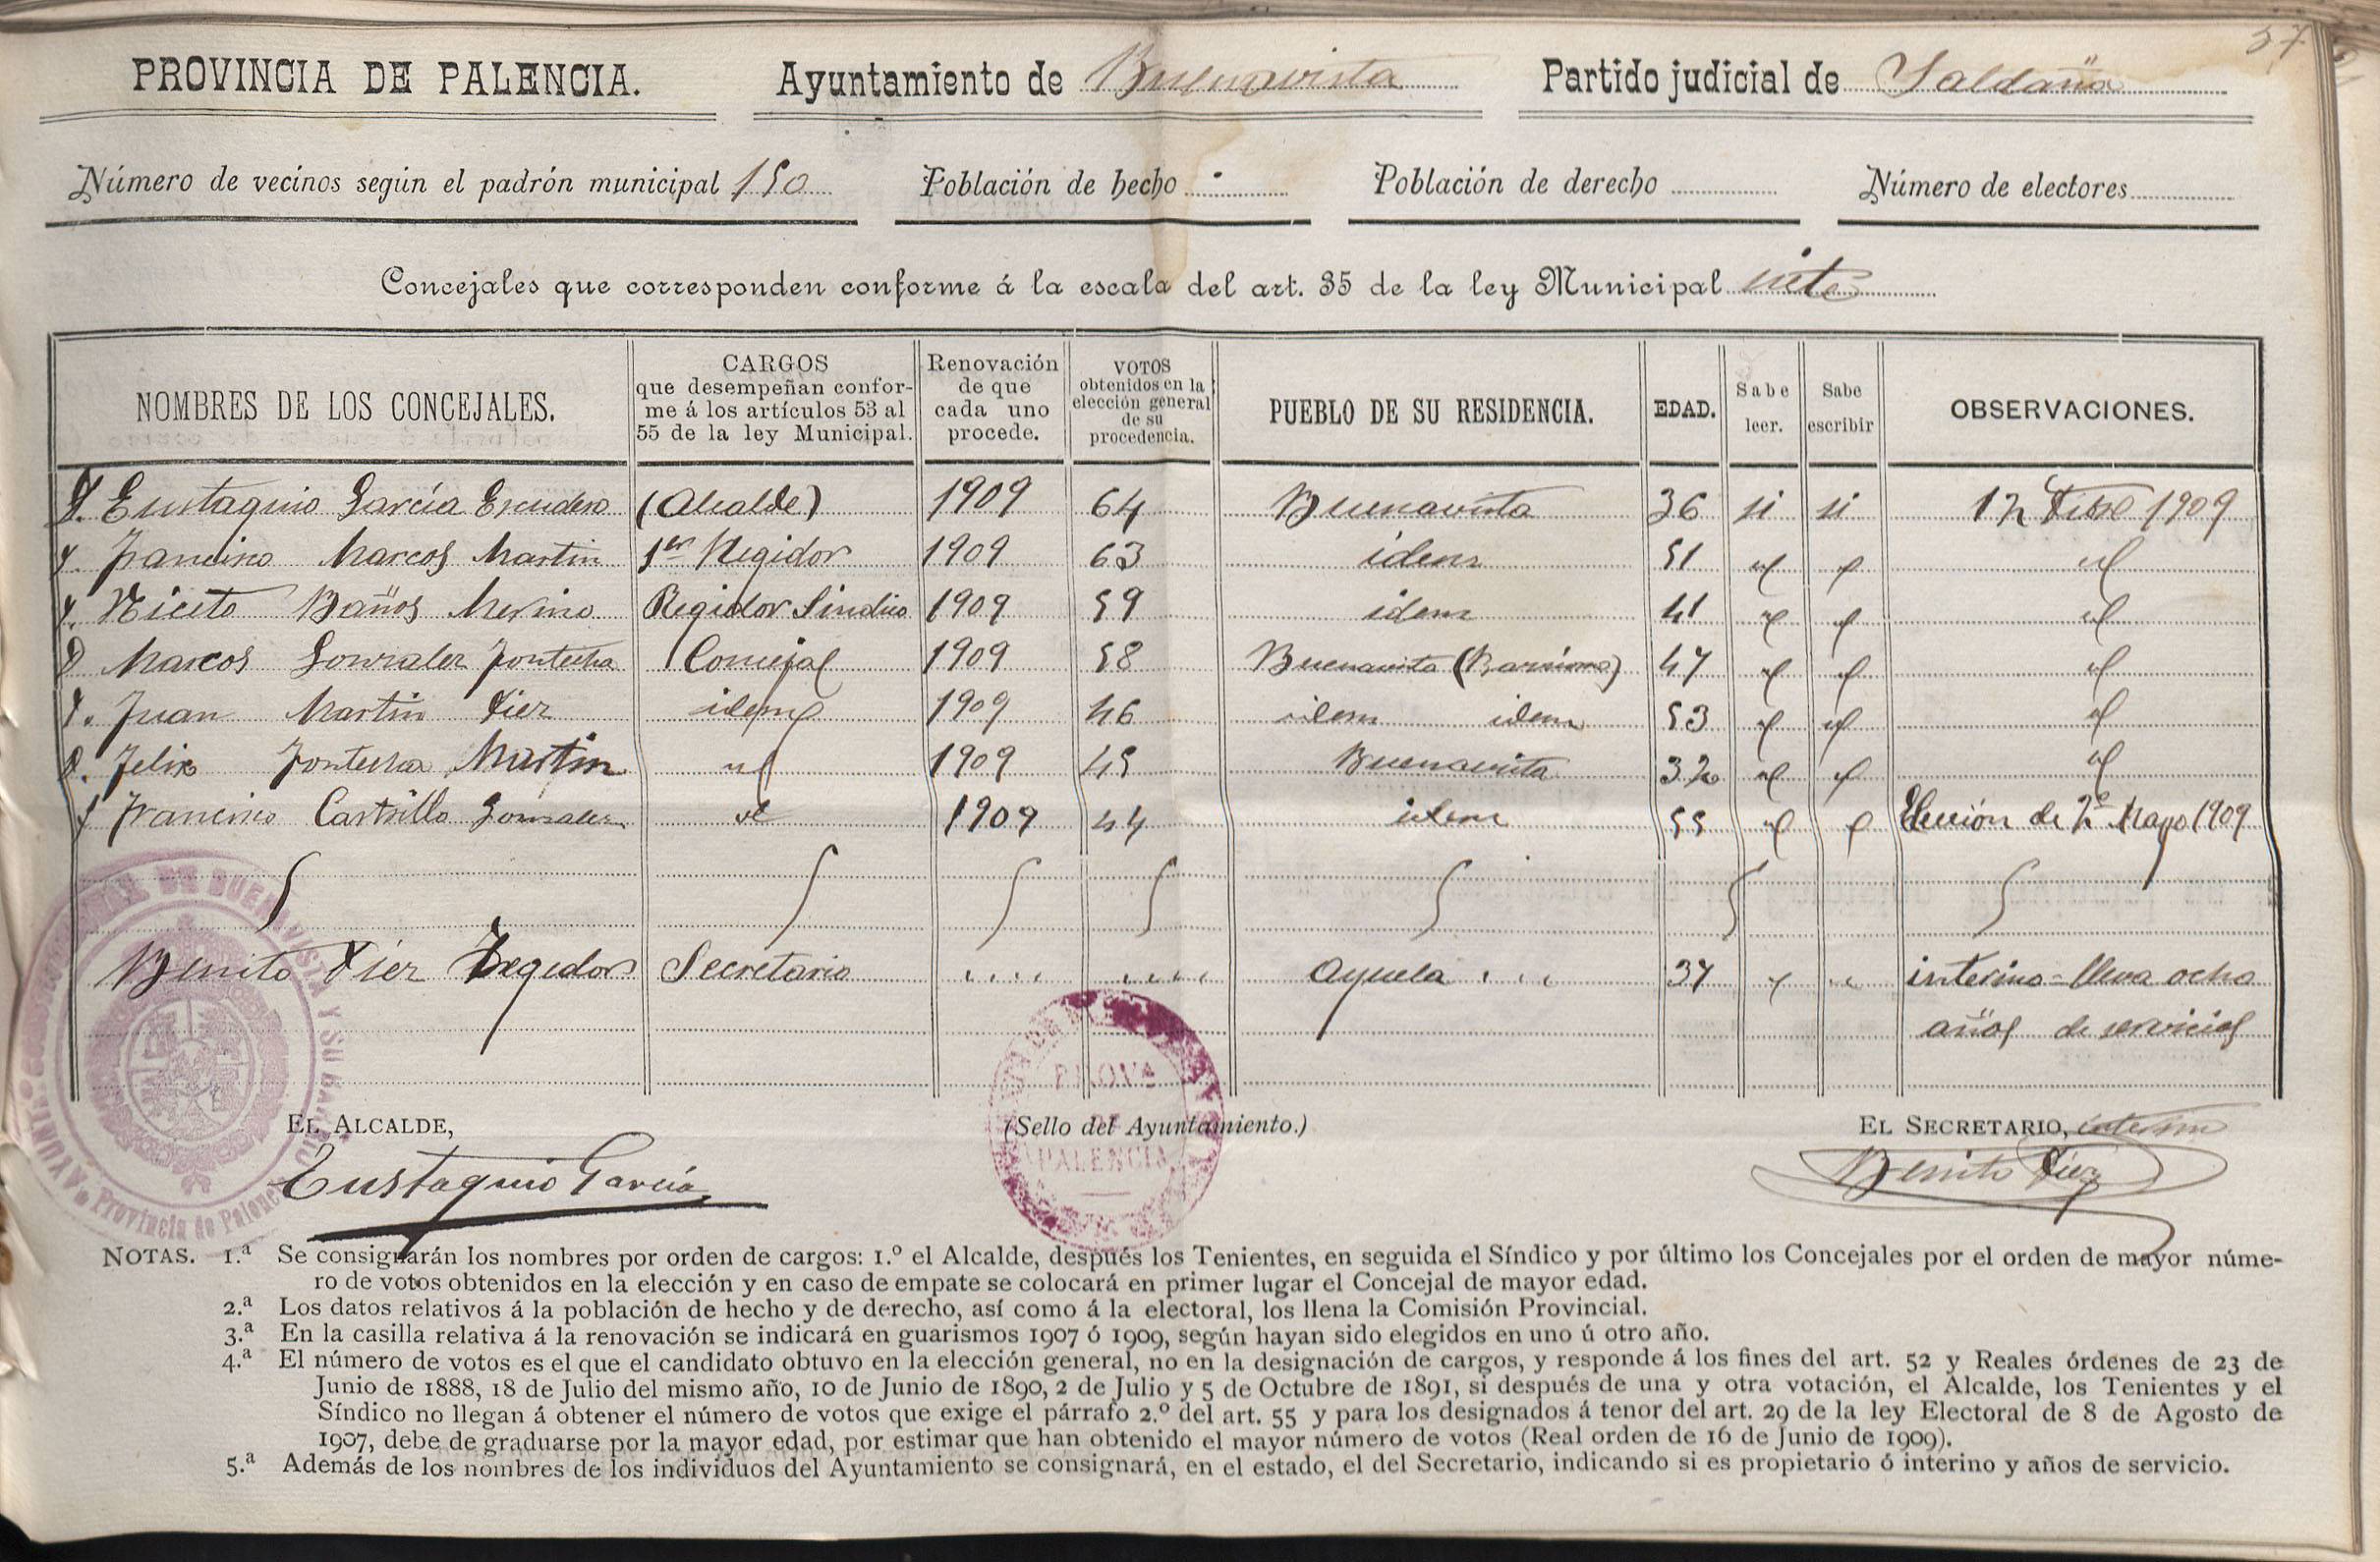 37
PROVINCIA DE PALENCIA. Ayuntamiento de Buenavista Partido judicial de Saldaña
Número de vecinos según el padrón municipal 150 Población de hecho Población de derecho Número de electores
Concejales que corresponden conforme á la escala del art. 35 de la ley Municipal siete
NOMBRES DE LOS CONCEJALES. CARGOS que desempeñan conforme á los artículos 53 al 55 de la ley Municipal. Renovación de que cada uno procede. VOTOS obtenidos en la elección general de su procedencia. PUEBLO DE SU RESIDENCIA. EDAD. Sabe leer. Sabe escribir OBSERVACIONES.
D. Eustaquio García Escudero (Alcalde) 1909 64 Buenavista 36 si si 12 Dbre 1909
D. Francisco Marcos Martin 1er Regidor 1909 63 idem 51 id id id
D. Niceto Baños Merino Regidor Sindico 1909 59 idem 41 id id id
D Marcos Gonzalez Fontecha Concejal 1909 58 Buenavista (Barriosuso) 47 id id id
D. Juan Martin Diez idem 1909 46 idem idem 53 id id id
D. Felix Fontecha Martin id 1909 45 Buenavista 32 id id id
D Francisco Castrillo Gonzalez id 1909 44 idem 55 id id Elección de 2 Mayo 1909
Benito Diez Tregidor Secretario Ayuela 37 interino = lleva ocho
años de servicios
AYUNTAMIENTO DE BUENAVISTA Y SU BARRIO Provincia de Palencia
PROVª DE PALENCIA
EL ALCALDE, (Sello del Ayuntamiento.) EL SECRETARIO, interino
Eustaquio García Benito Diez
NOTAS. 1.ª Se consignarán los nombres por orden de cargos: 1.º el Alcalde, después los Tenientes, en seguida el Síndico y por último los Concejales por el orden de mayor núme-
ro de votos obtenidos en la elección y en caso de empate se colocará en primer lugar el Concejal de mayor edad.
2.ª Los datos relativos á la población de hecho y de derecho, así como á la electoral, los llena la Comisión Provincial.
3.ª En la casilla relativa á la renovación se indicará en guarismos 1907 ó 1909, según hayan sido elegidos en uno ú otro año.
4.ª El número de votos es el que el candidato obtuvo en la elección general, no en la designación de cargos, y responde á los fines del art. 52 y Reales órdenes de 23 de
Junio de 1888, 18 de Julio del mismo año, 10 de Junio de 1890, 2 de Julio y 5 de Octubre de 1891, si después de una y otra votación, el Alcalde, los Tenientes y el
Síndico no llegan á obtener el número de votos que exige el párrafo 2.º del art. 55 y para los designados á tenor del art. 29 de la ley Electoral de 8 de Agosto de
1907, debe de graduarse por la mayor edad, por estimar que han obtenido el mayor número de votos (Real orden de 16 de Junio de 1909).
5.ª Además de los nombres de los individuos del Ayuntamiento se consignará, en el estado, el del Secretario, indicando si es propietario ó interino y años de servicio.